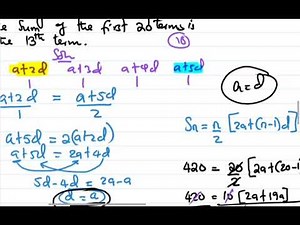 the sum of the first 20 terms is
the 13th term. (10)
Soln
a+2d a+3d a+4d a+5d
1 1 1 1
a+2d = a+5d
1 2
a+5d = 2(a+2d)
a+5d = 2a+4d
5d-4d = 2a-a
d = a
a=d
Sn = n/2 [2a+(n-1)d]
420 = 20/2 [2a+(20-1
420 = 10 [2a+19d]